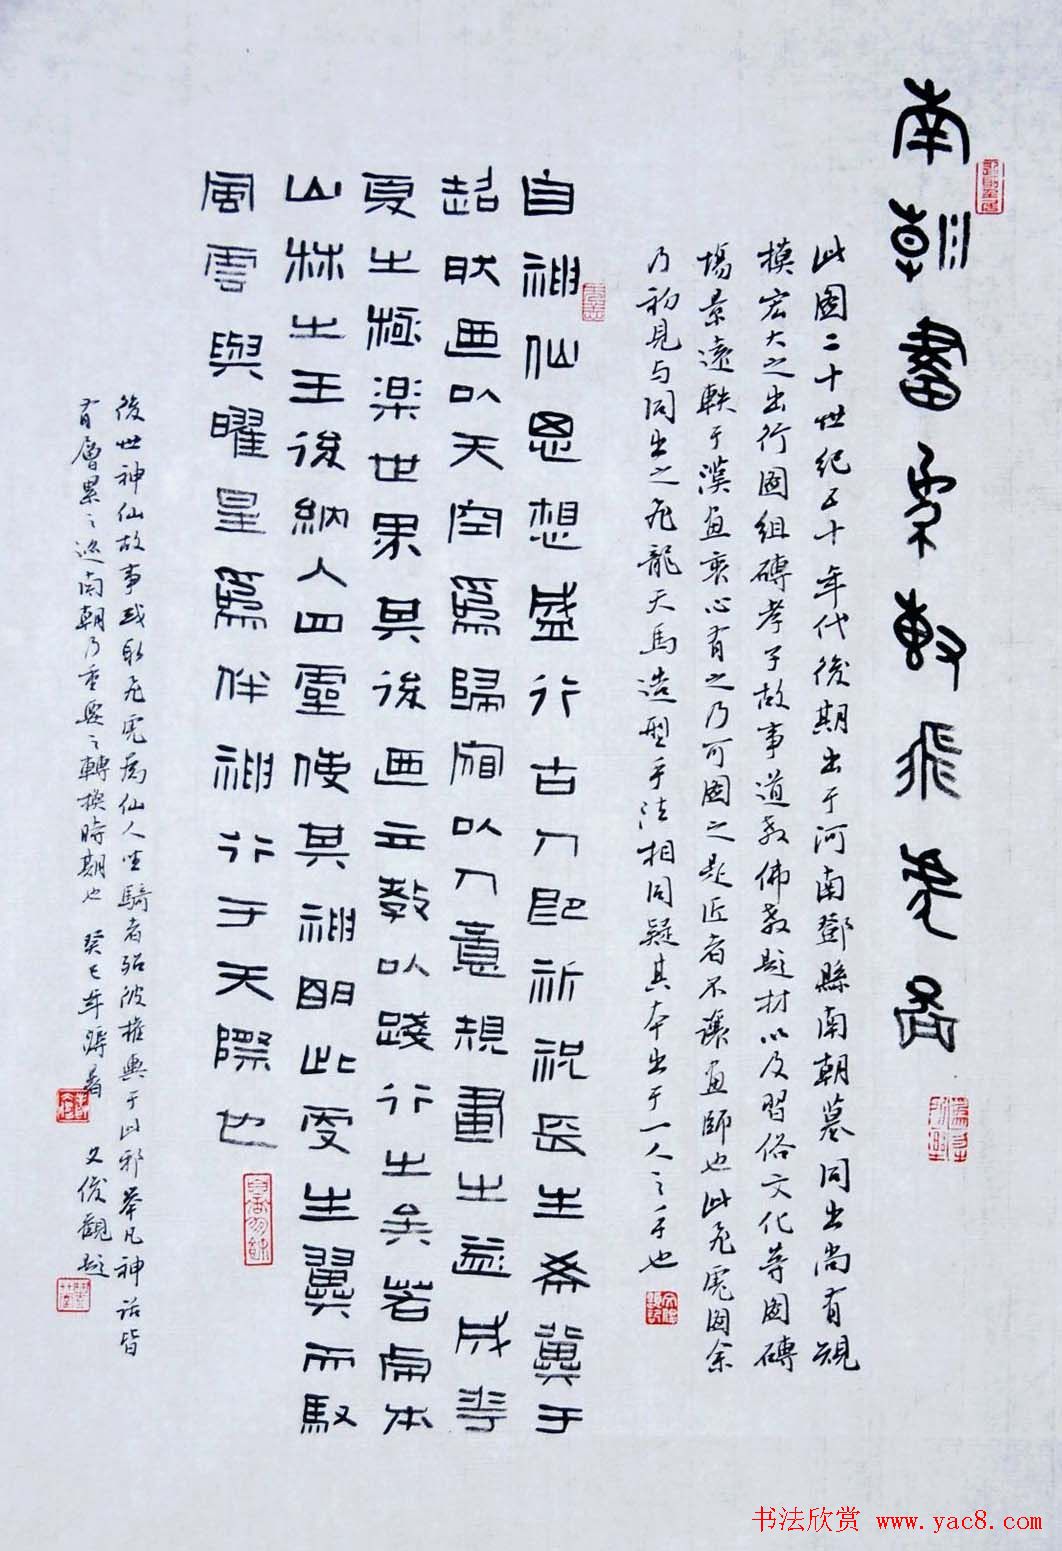 南朝畫像軒飛虎圖
此圖二十世紀五十年代後期出于河南鄧縣南朝墓同出尚有規
模宏大之出行圖組磚孝子故事道教佛教題材以及習俗文化等圖磚
場景遠軼于漢畫爽心有之乃可圖之是匠者不讓畫師也此飛虎圖余
乃初見与同出之飛龍天馬造型手法相同疑其本出于一人之手也
自神仙思想盛行古人即祈祝長生希冀于
超脫迺以天空為歸宿以人意規畫之益成華
夏之極樂世界其後迺立教以踐行之矣若虎本
山林之王後納入四靈使其神明此更生翼而馭
風雲與曜星為伴神行于天際也
後世神仙故事或取飛虎為仙人坐騎者殆波權輿于此邪舉凡神話皆
有層累之迹南朝乃重要之轉換時期也 癸巳年 文俊觀題
书法欣赏 www.yac8.com